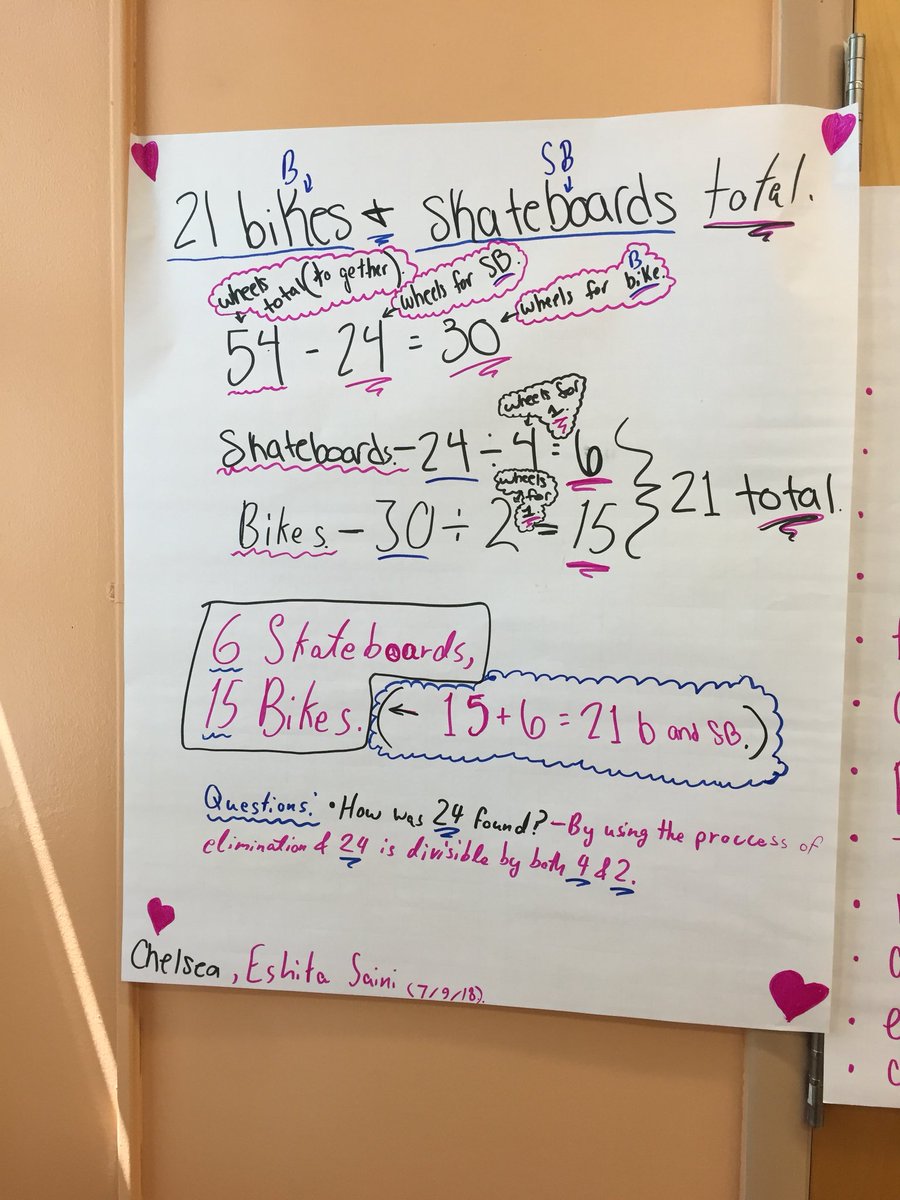 B SB
21 bikes & skateboards total.
wheels total (to gether).
wheels for SB.
B
wheels for bike.
54 - 24 = 30
wheels for 1
Skateboards - 24 ÷ 4 = 6
21 total.
wheels for 1
Bikes. - 30 ÷ 2 = 15
6 Skateboards,
15 Bikes.
(← 15+6 = 21 b and SB.)
Questions: • How was 24 found? - By using the proccess of
elimination & 24 is divisible by both 4 & 2.
Chelsea, Eshita Saini (7/9/18).